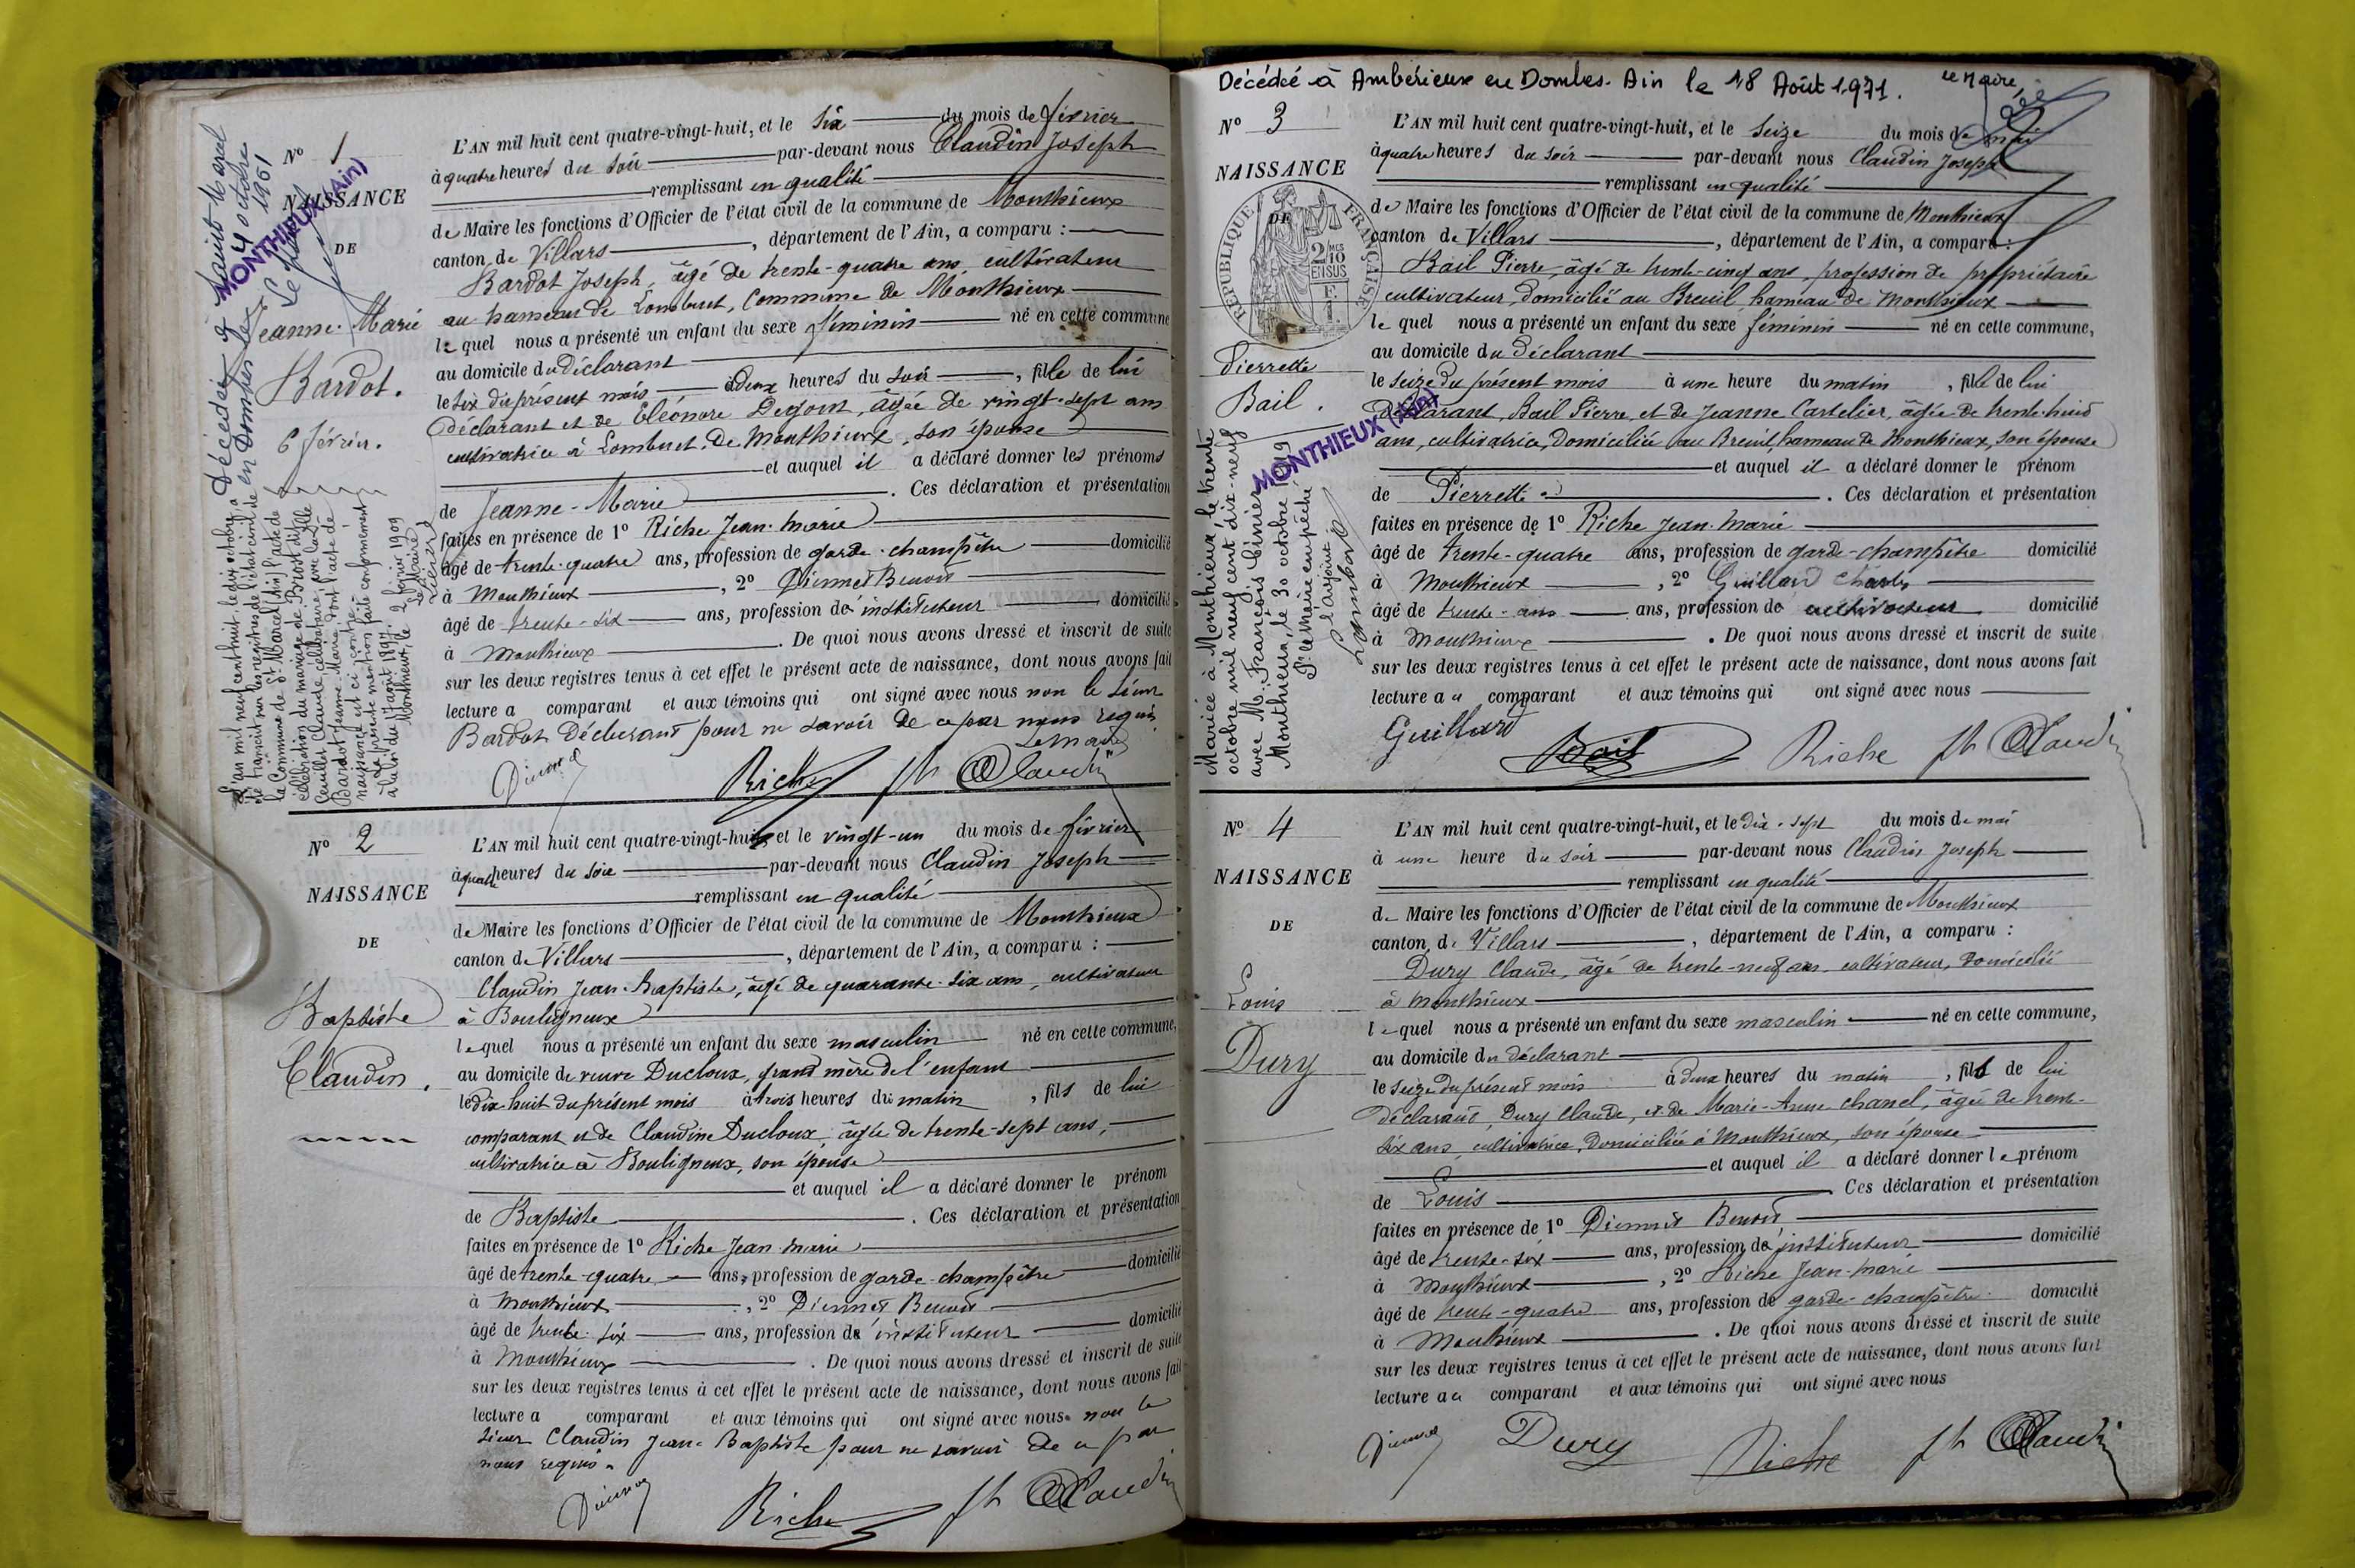 Décédée à Saint Marcel
en Dombes le
4 octobre
1961
MONTHIEUX (Ain)
Le Maire
N° 1
NAISSANCE
DE
Jeanne-Marie
Bardot.
6 février.
L'an mil neuf cent huit le dix octobre, a
été transcrit sur les registres de l'état civil de
la Commune de St Marcel (Ain) l'acte de
célébration du mariage de Brost dit
Claude, célibataire, avec la fille
Bardot Jeanne-Marie dont l'acte de
naissance est ci-contre.
La présente mention faite conformément
à la loi du 17 août 1897.
Monthieux, le 2 février 1909
Le Maire
L'AN mil huit cent quatre-vingt-huit, et le six du mois de février
à quatre heures du soir par-devant nous Claudin Joseph
remplissant en qualité
de Maire les fonctions d'Officier de l'état civil de la commune de Monthieux
canton de Villars, département de l'Ain, a comparu :
Bardot Joseph, âgé de trente-quatre ans, cultivateur
au hameau de Lombuet, Commune de Monthieux
lequel nous a présenté un enfant du sexe féminin né en cette commune
au domicile du déclarant
le six du présent mois à deux heures du soir, fille de lui
déclarant et de Eléonore Degout, âgée de vingt-sept ans
cultivatrice à Lombuet, de Monthieux, son épouse
et auquel il a déclaré donner les prénoms
de Jeanne-Marie. Ces déclaration et présentation
faites en présence de 1° Riche Jean-Marie
âgé de trente-quatre ans, profession de garde-champêtre domicilié
à Monthieux, 2° Diennet Benoit
âgé de trente-six ans, profession de instituteur domicilié
à Monthieux. De quoi nous avons dressé et inscrit de suite
sur les deux registres tenus à cet effet le présent acte de naissance, dont nous avons fait
lecture a comparant et aux témoins qui ont signé avec nous non le sieur
Bardot déclarant pour ne savoir de ce par nous requis
Le Maire
Diennet Riche Jh Claudin
N° 2
NAISSANCE
DE
Baptiste
Claudin.
L'AN mil huit cent quatre-vingt-huit, et le vingt-un du mois de février
à quatre heures du soir par-devant nous Claudin Joseph
remplissant en qualité
de Maire les fonctions d'Officier de l'état civil de la commune de Monthieux
canton de Villars, département de l'Ain, a comparu :
Claudin Jean-Baptiste, âgé de quarante-six ans, cultivateur
à Bouligneux
lequel nous a présenté un enfant du sexe masculin né en cette commune,
au domicile de veuve Ducloux, grand mère de l'enfant
le dix huit du présent mois à trois heures du matin, fils de lui
comparant et de Claudine Ducloux, âgée de trente-sept ans,
cultivatrice à Bouligneux, son épouse
et auquel il a déclaré donner le prénom
de Baptiste. Ces déclaration et présentation
faites en présence de 1° Riche Jean-Marie
âgé de trente-quatre ans, profession de garde-champêtre domicilié
à Monthieux, 2° Diennet Benoit
âgé de trente-six ans, profession de instituteur domicilié
à Monthieux. De quoi nous avons dressé et inscrit de suite
sur les deux registres tenus à cet effet le présent acte de naissance, dont nous avons fait
lecture a comparant et aux témoins qui ont signé avec nous non le
sieur Claudin Jean-Baptiste pour ne savoir de ce par
nous requis.
Diennet Riche Jh Claudin
Décédée à Ambérieux en Dombes. Ain le 18 Août 1971. Le Maire,
N° 3
NAISSANCE
DE
RÉPUBLIQUE FRANÇAISE
2 MES
10
EN SUS
Pierrette
Bail.
Mariée à Monthieux, le trente
octobre mil neuf cent dix-neuf
avec M. François Cinier
Monthieux, le 30 octobre 1919
Pr le Maire empêché
l'adjoint
Lombard
MONTHIEUX (Ain)
L'AN mil huit cent quatre-vingt-huit, et le seize du mois de mai
à quatre heures du soir par-devant nous Claudin Joseph
remplissant en qualité
de Maire les fonctions d'Officier de l'état civil de la commune de Monthieux
canton de Villars, département de l'Ain, a comparu :
Bail Pierre, âgé de trente-cinq ans, profession de propriétaire
cultivateur, domicilié au Breuil, hameau de Monthieux
lequel nous a présenté un enfant du sexe féminin né en cette commune,
au domicile du déclarant
le seize du présent mois à une heure du matin, fille de lui
déclarant, Bail Pierre, et de Jeanne Cartelier, âgée de trente-huit
ans, cultivatrice, domiciliée au Breuil, hameau de Monthieux, son épouse
et auquel il a déclaré donner le prénom
de Pierrette. Ces déclaration et présentation
faites en présence de 1° Riche Jean-Marie
âgé de trente-quatre ans, profession de garde-champêtre domicilié
à Monthieux, 2° Guillard Charles
âgé de trente-ans ans, profession de cultivateur domicilié
à Monthieux. De quoi nous avons dressé et inscrit de suite
sur les deux registres tenus à cet effet le présent acte de naissance, dont nous avons fait
lecture au comparant et aux témoins qui ont signé avec nous
Guillard Bail Riche Jh Claudin
N° 4
NAISSANCE
DE
Louis
Dury
L'AN mil huit cent quatre-vingt-huit, et le dix-sept du mois de mai
à une heure du soir par-devant nous Claudin Joseph
remplissant en qualité
de Maire les fonctions d'Officier de l'état civil de la commune de Monthieux
canton de Villars, département de l'Ain, a comparu :
Dury Claude, âgé de trente-neuf ans, cultivateur, domicilié
à Monthieux
lequel nous a présenté un enfant du sexe masculin né en cette commune,
au domicile du déclarant
le seize du présent mois à deux heures du matin, fils de lui
déclarant, Dury Claude, et de Marie-Anne Chanel, âgée de trente-
six ans, cultivatrice, domiciliée à Monthieux, son épouse
et auquel il a déclaré donner le prénom
de Louis Ces déclaration et présentation
faites en présence de 1° Diennet Benoit,
âgé de trente-six ans, profession de instituteur domicilié
à Monthieux, 2° Riche Jean-Marie
âgé de trente-quatre ans, profession de garde-champêtre domicilié
à Monthieux. De quoi nous avons dressé et inscrit de suite
sur les deux registres tenus à cet effet le présent acte de naissance, dont nous avons fait
lecture au comparant et aux témoins qui ont signé avec nous
Diennet Dury Riche Jh Claudin